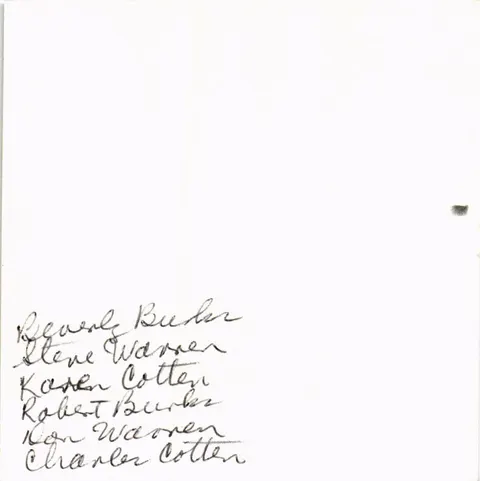 Beverly Burks
Steve Warren
Karen Cotten
Robert Burks
Don Warren
Charles Cotten